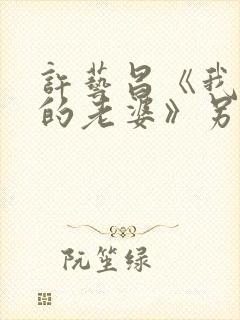 許藝昌《我
的老婆》另
阮笙绿